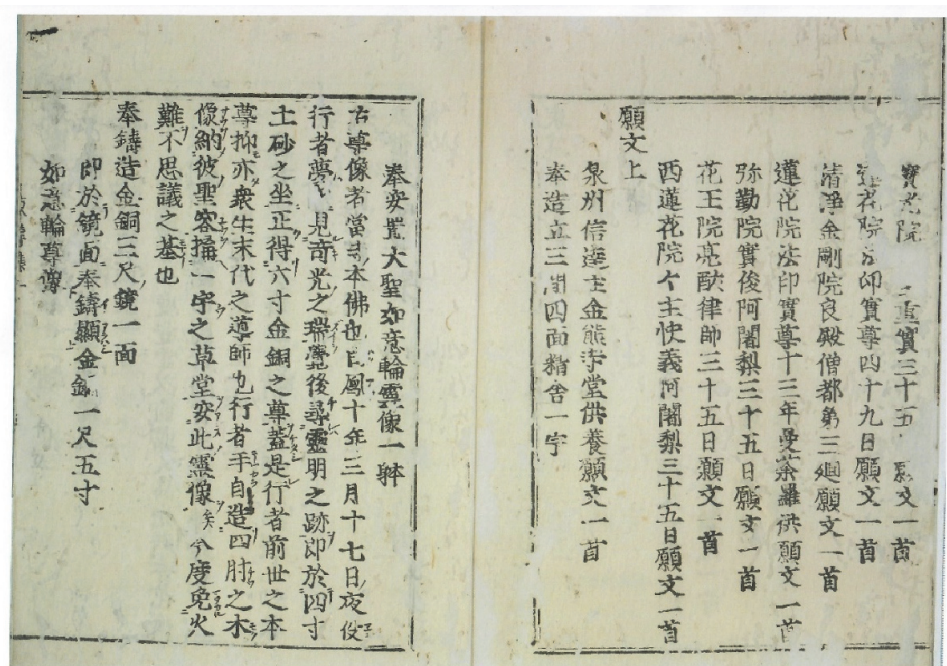 寶光院 二重實三十五 願文一首
蓮花院法印實尊四十九日願文一首
清淨金剛院良殿僧都第三廻願文一首
蓮花院法印實尊十三年曼荼羅供願文一首
弥勤院實俊阿闍梨三十五日願文一首
花王院亮耿律師三十五日願文一首
西蓮花院个主快義阿闍梨三十五日願文一首
願文上
泉州信達庄金熊寺堂供養願文一首
奉造立三間四面精舎一宇
奉安置大聖如意輪靈像一躰
右尊像者當寺本佛也白鳳十年三月十七日夜伇
行者夢見奇光之瑞覺後尋靈明之跡即於四寸
土砂之坐正得六寸金銅之尊蓋是行者前世之本
尊抑亦衆生末代之導師也行者手自造四肘之木
像納彼聖容搆一宇之草堂安此靈像矣今度免火
難不思議之基也
奉鑄造金銅三尺鏡一面
即於鏡面奉鑄顯金銅一尺五寸
如意輪尊像